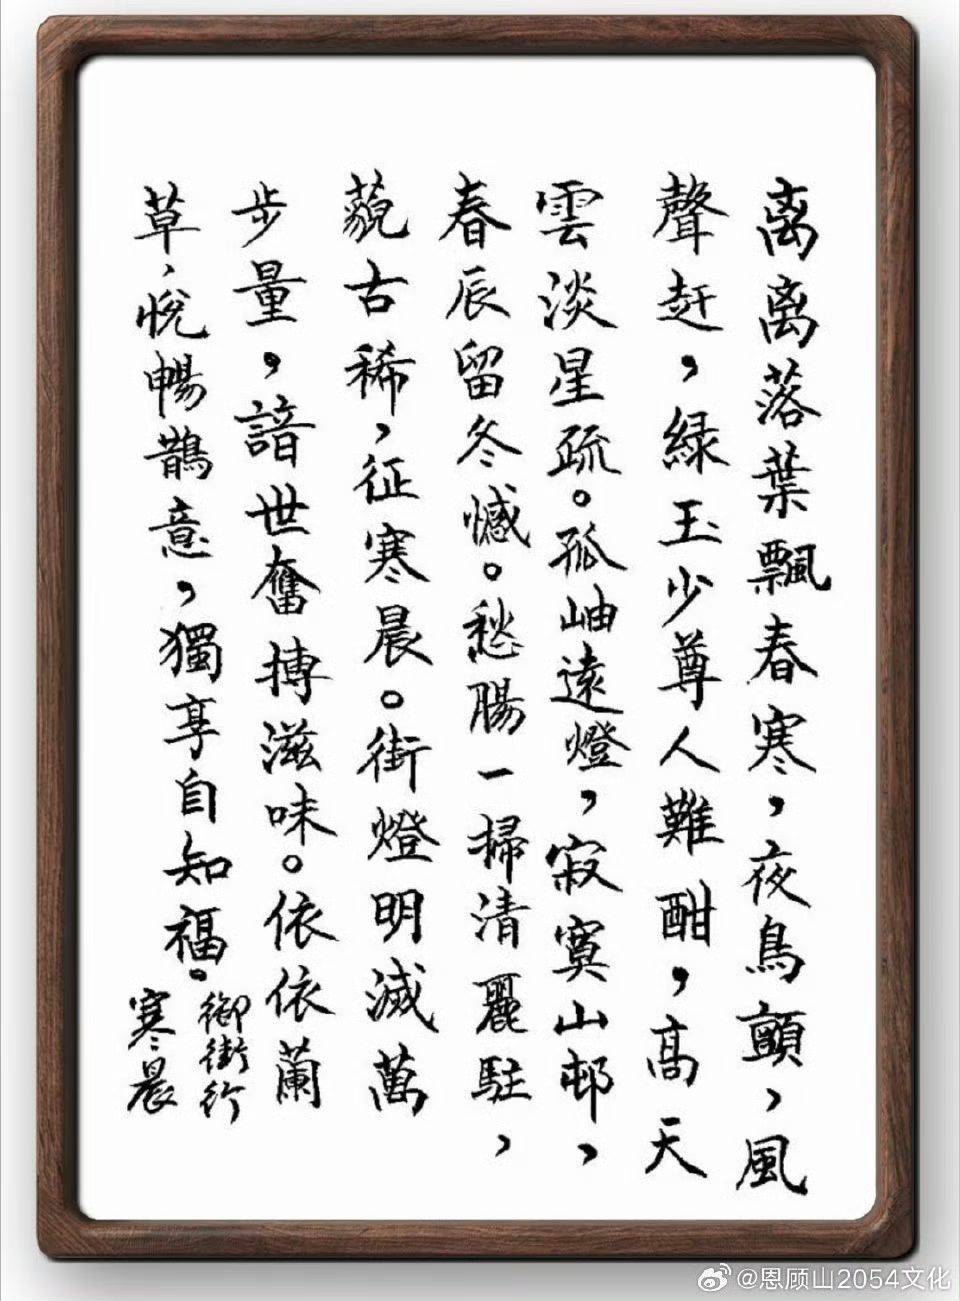 离离落葉飄春寒，夜鳥顫，風
聲赶，綠玉少尊人難酣，高天
雲淡星疏。孤岫遠燈，寂寞山邨，
春辰留冬憾。愁腸一掃清麗駐，
藐古稀，征寒晨。街燈明滅萬
步量，諳世奮搏滋味。依依蘭
草，悅暢鵲意，獨享自知福。
御街行
寒晨
@恩顾山2054文化